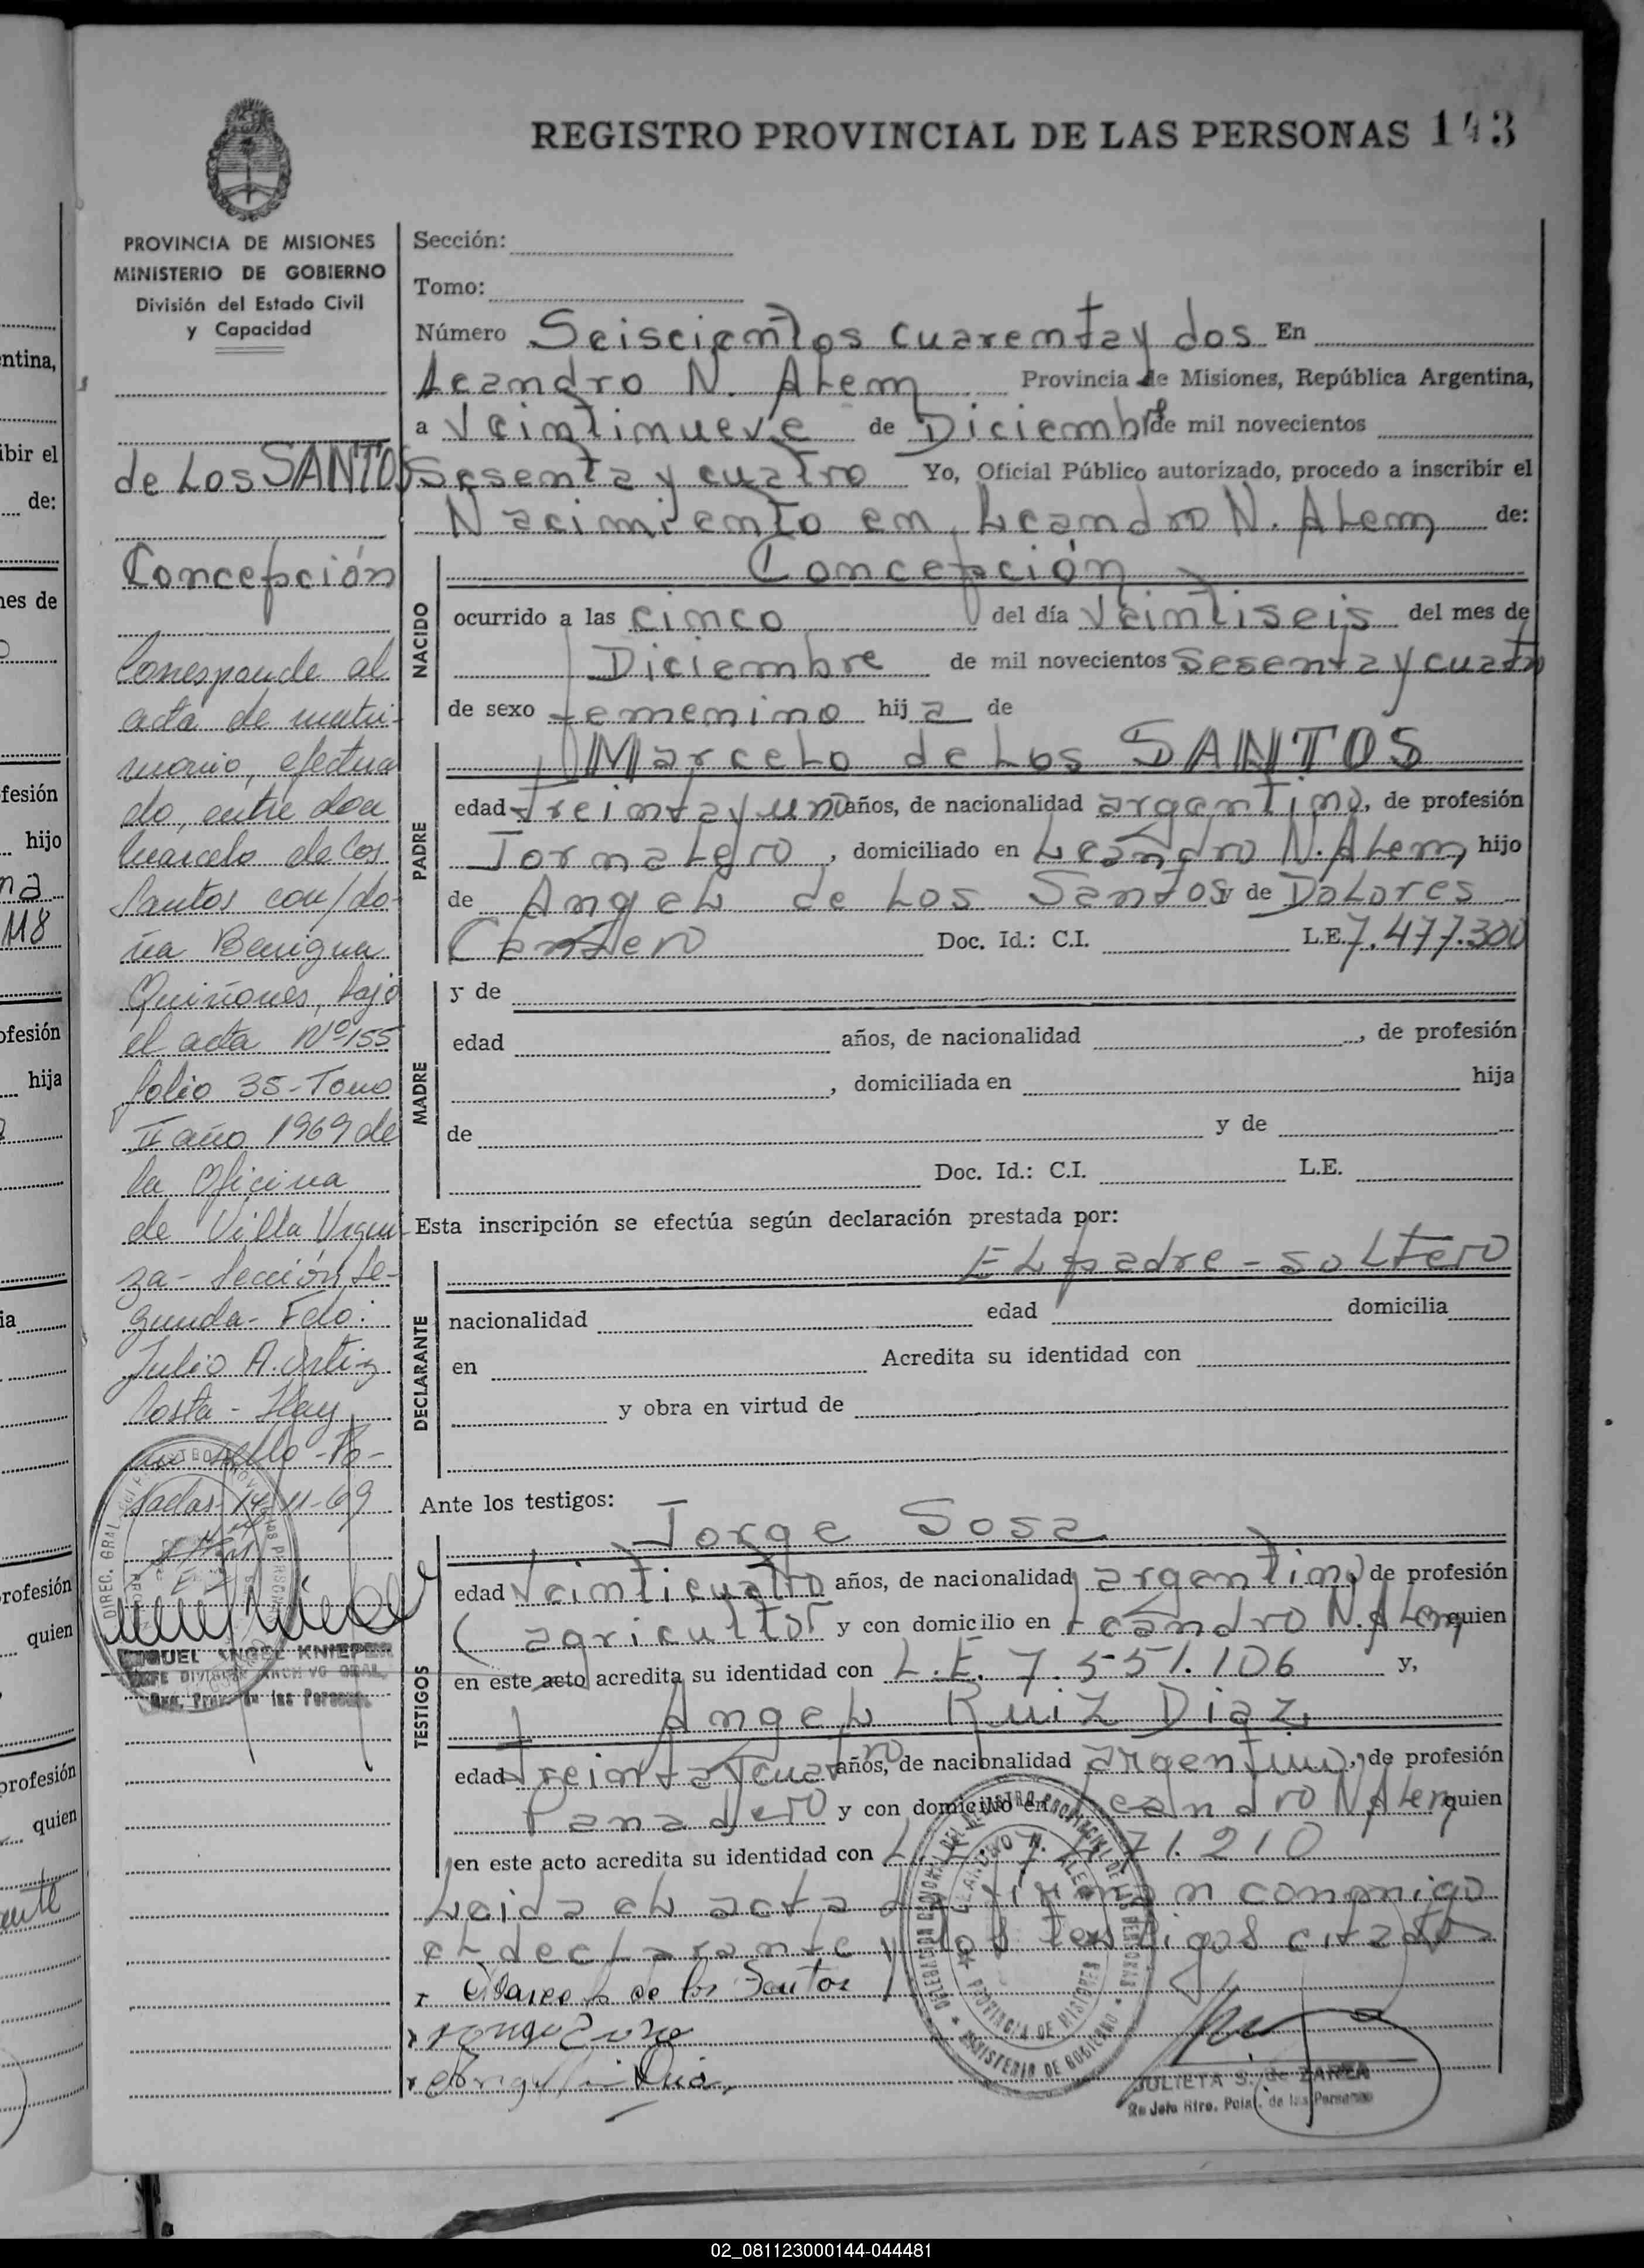 REGISTRO PROVINCIAL DE LAS PERSONAS 143
PROVINCIA DE MISIONES
MINISTERIO DE GOBIERNO
División del Estado Civil
y Capacidad
de Los SANTOS
Concepción
Corresponde al
acta de matri-
monio, efectua
do, entre don
Marcelo de los
Santos con/do-
ña Benigna
Quiñones, bajo
el acta Nº 155
folio 35 - Tomo
II año 1969 de
la Oficina
de Villa Urqui-
za - Sección Se-
gunda - Fdo:
Julio A. Ortiz
Costa - Hay
un sello - Po-
sadas - 14-11-69
Sección:
Tomo:
Número Seiscientos cuarenta y dos En
Leandro N. ALem Provincia de Misiones, República Argentina,
a Veintinueve de Diciembre de mil novecientos
Sesenta y cuatro Yo, Oficial Público autorizado, procedo a inscribir el
Nacimiento en Leandro N. ALem de:
NACIDO
Concepción
ocurrido a las cinco del día Veintiseis del mes de
Diciembre de mil novecientos Sesenta y cuatro
de sexo femenino hija de
PADRE
MarceLo de Los SANTOS
edad treinta y un años, de nacionalidad argentino, de profesión
JornaLero, domiciliado en Leandro N. ALem, hijo
de AngeL de Los Santos y de DoLores
Doc. Id.: C.I. L.E. 7.477.300
MADRE
y de
edad años, de nacionalidad , de profesión
, domiciliada en hija
de y de
Doc. Id.: C.I. L.E.
Esta inscripción se efectúa según declaración prestada por:
DECLARANTE
EL padre - soLtero
nacionalidad edad domicilia
en Acredita su identidad con
y obra en virtud de
Ante los testigos:
TESTIGOS
Jorge Sosa
edad Veinticuatro años, de nacionalidad argentino de profesión
agricultor y con domicilio en Leandro N. ALem quien
en este acto acredita su identidad con L.E. 7.551.106 y,
AngeL Ruiz Diaz
edad treinta y cuatro años, de nacionalidad argentino, de profesión
Panadero y con domicilio en Leandro N ALem quien
en este acto acredita su identidad con 71.210
Leida eL acta La firman conmigo
eL decLarante y los testigos citados
Marcelo de los Santos
JULIETA S. de ZAREA
de las Personas
02_081123000144-044481